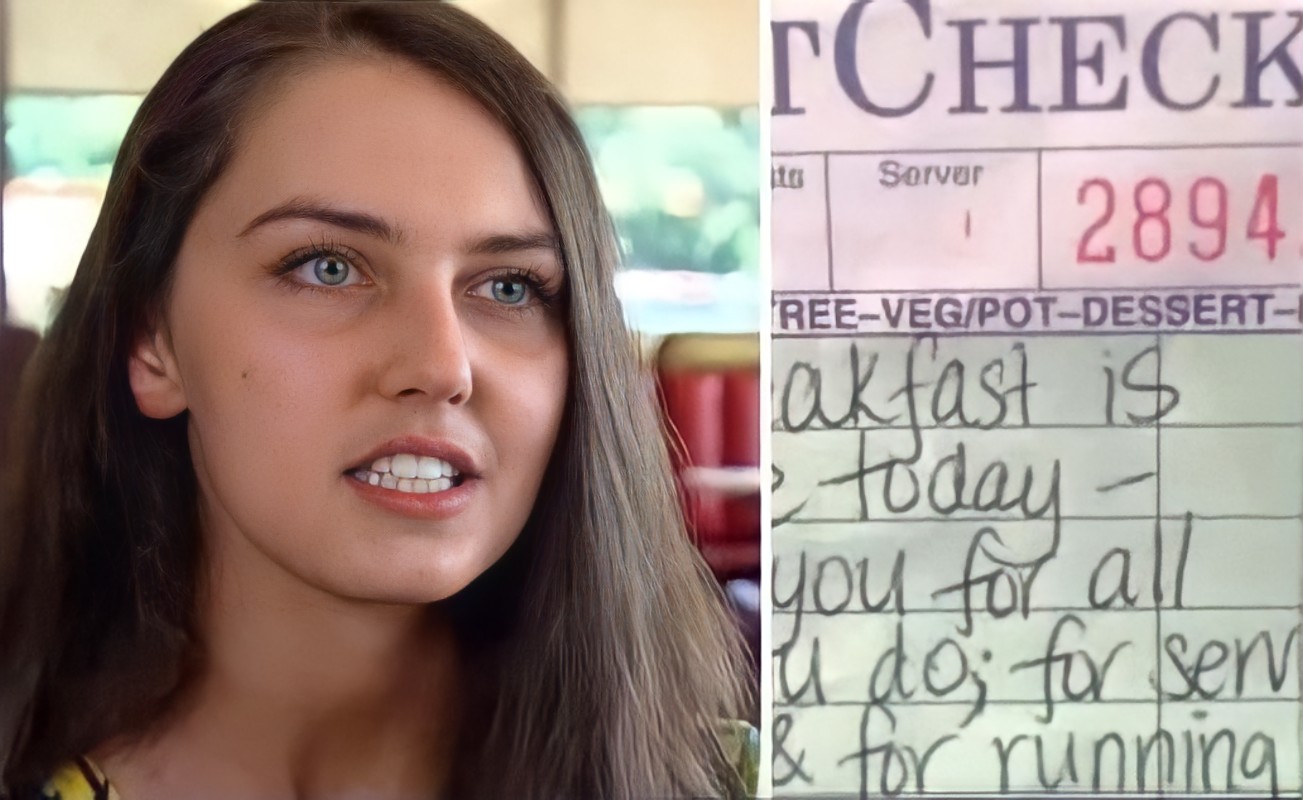 TCHECK
Server
2894
REE-VEG/POT-DESSERT-
akfast is
today -
you for all
u do; for serv
& for running